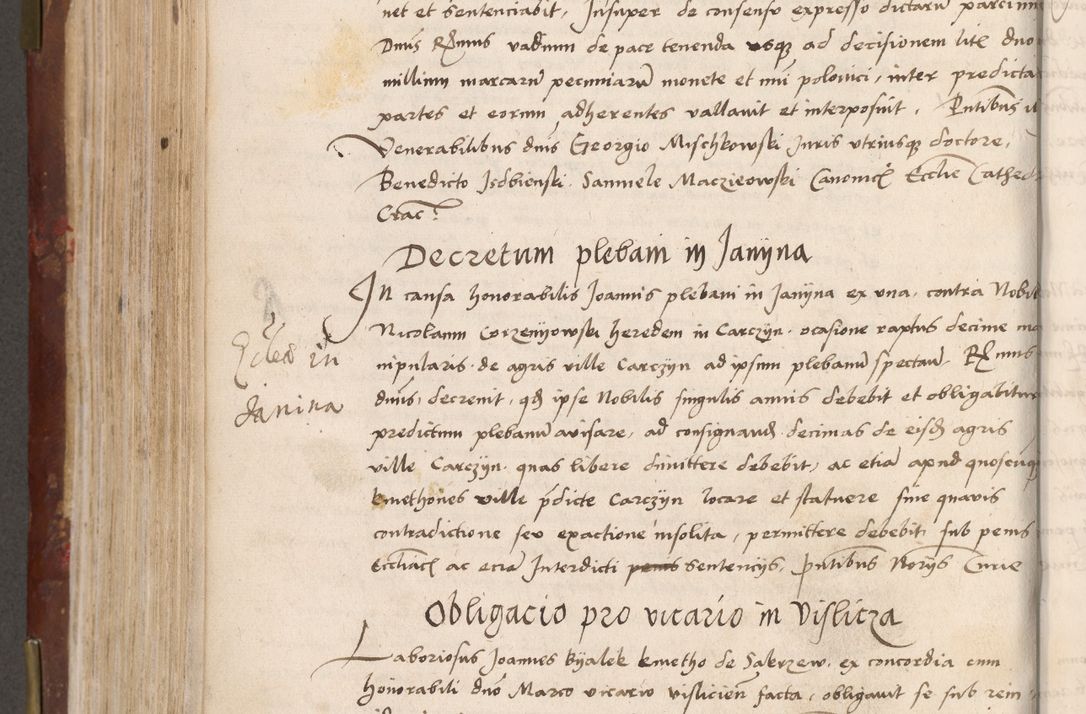 net et Sentenciabit, Insuper de consensu expresso dictaru parcium
Dnus Rmus vadium de pace tenenda usq ad decisionem litis duo
millium marcaru pecuniaru monete et nu polonici, inter predicta
partes et eorum adherentes vallavit et interposuit, Pntibus
Venerabilibus dnis Georgio Mischkowski Juris utriusq doctore,
Benedicto Isdbienski, Samuele Maczieowski Canonicis Ecclie Cathed
Crac.
Decretum plebani in Janyna
In causa honorabilis Joannis plebani in Janyna ex una, contra Nobil
Nicolaum Corzenyowski heredem in Carczyn, ocasione raptus decime ma
nipularis de agris ville Carczyn ad ipsum plebanu spectan. Rmus
dnus, decrevit, qd ipse Nobilis singulis annis debebit et obligabitur
predictum plebanu avisare, ad consignand decimas de eisd agris
ville Carczyn, quas libere dimittere debebit, ac etia apud quoscuq
kmethones ville pdicte Carczyn locare et statuere sine quavis
contradictione seu exactione insolita, permittere debebit, sub penis
Eccliacis ac ecia Interdicti penis Sentencijs, pntibus Norijs Curie
Ecclea in
Janina
Obligacio pro vicario in Vislicza
Laboriosus Joannes Byalek kmetho de Sakrzew, ex concordia cum
honorabili dno Marco vicario vislicien facta, obligavit se sub rem